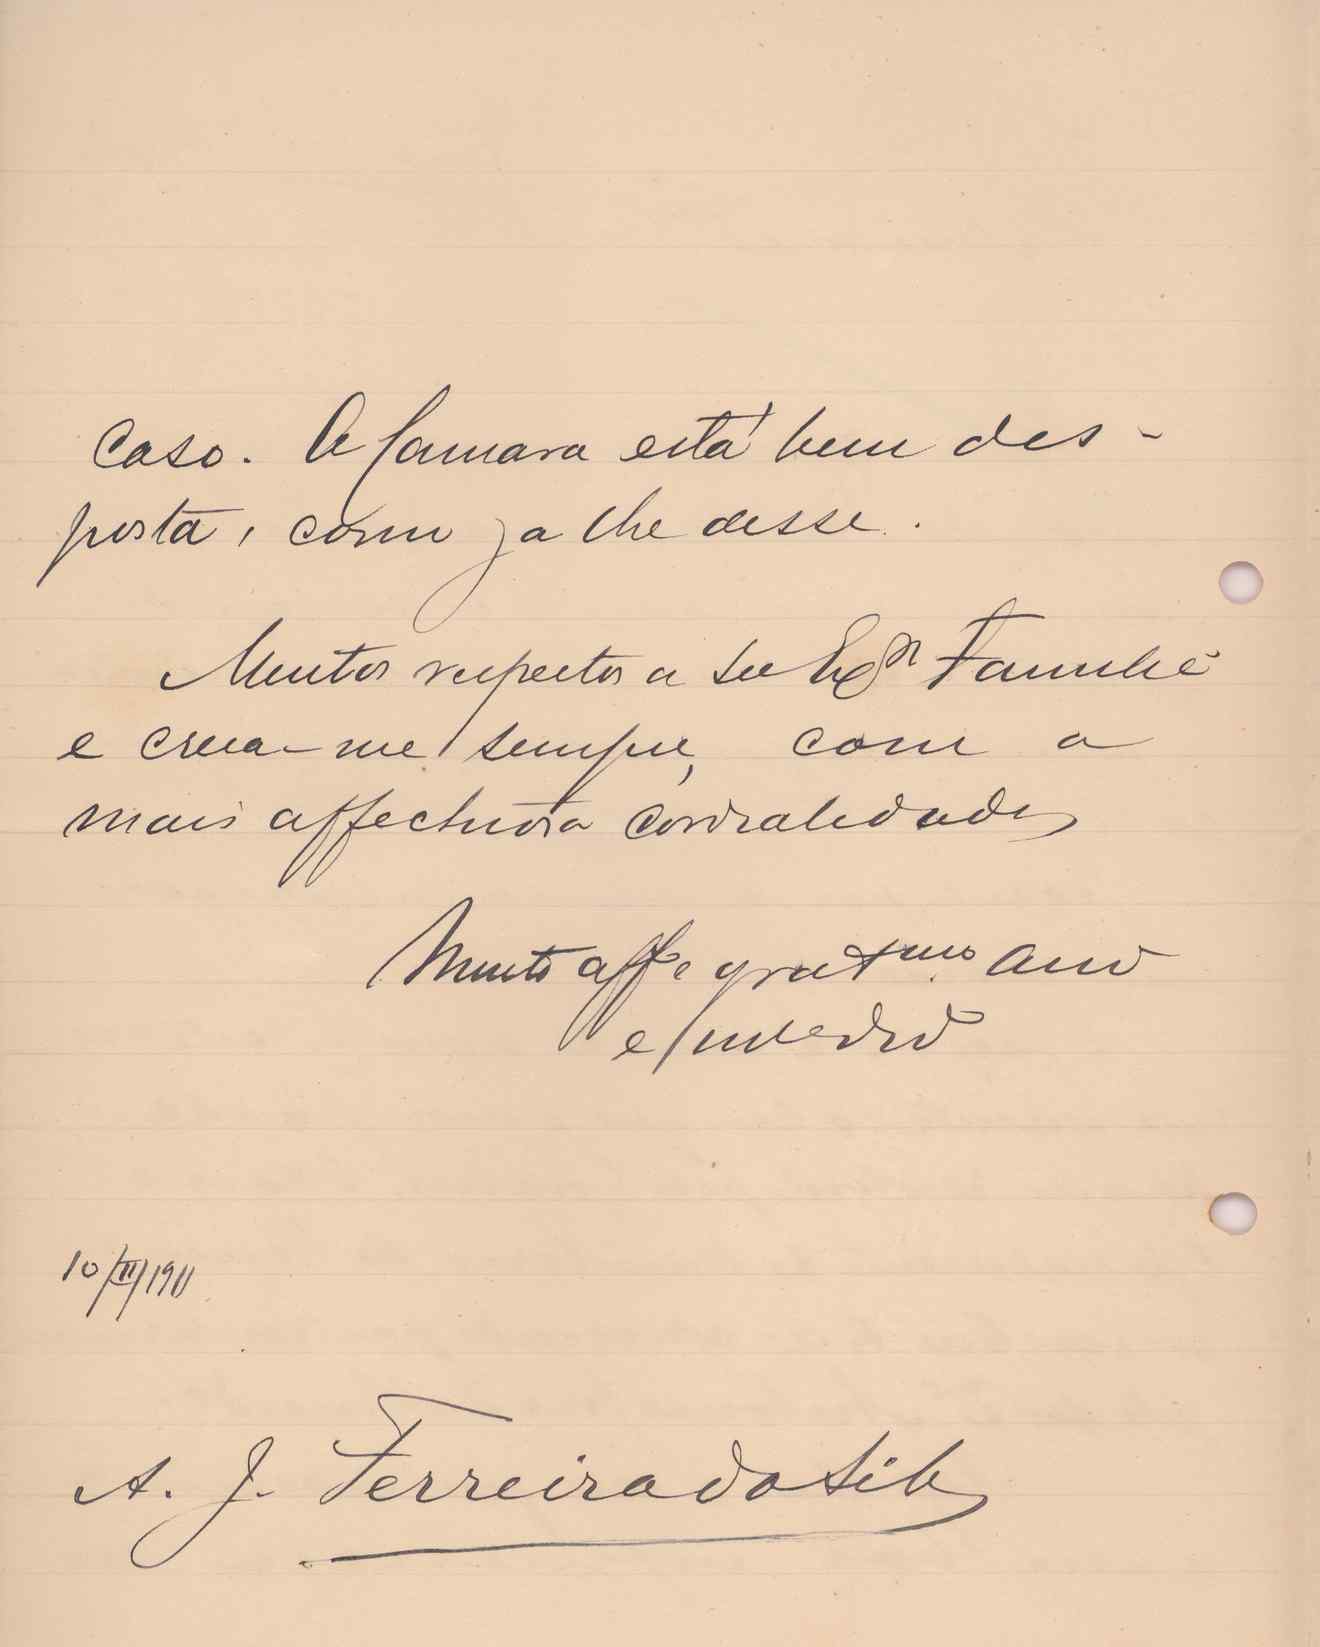 caso. A Camara está bem des-
posta, como ja lhe disse.
Muitos respeitos a sua Exma Familia
e creia-me sempre, com a
mais affectuosa cordialidade
Muito affe gratmo amo
e
10/III/1911
A. J. Ferreira da Silva